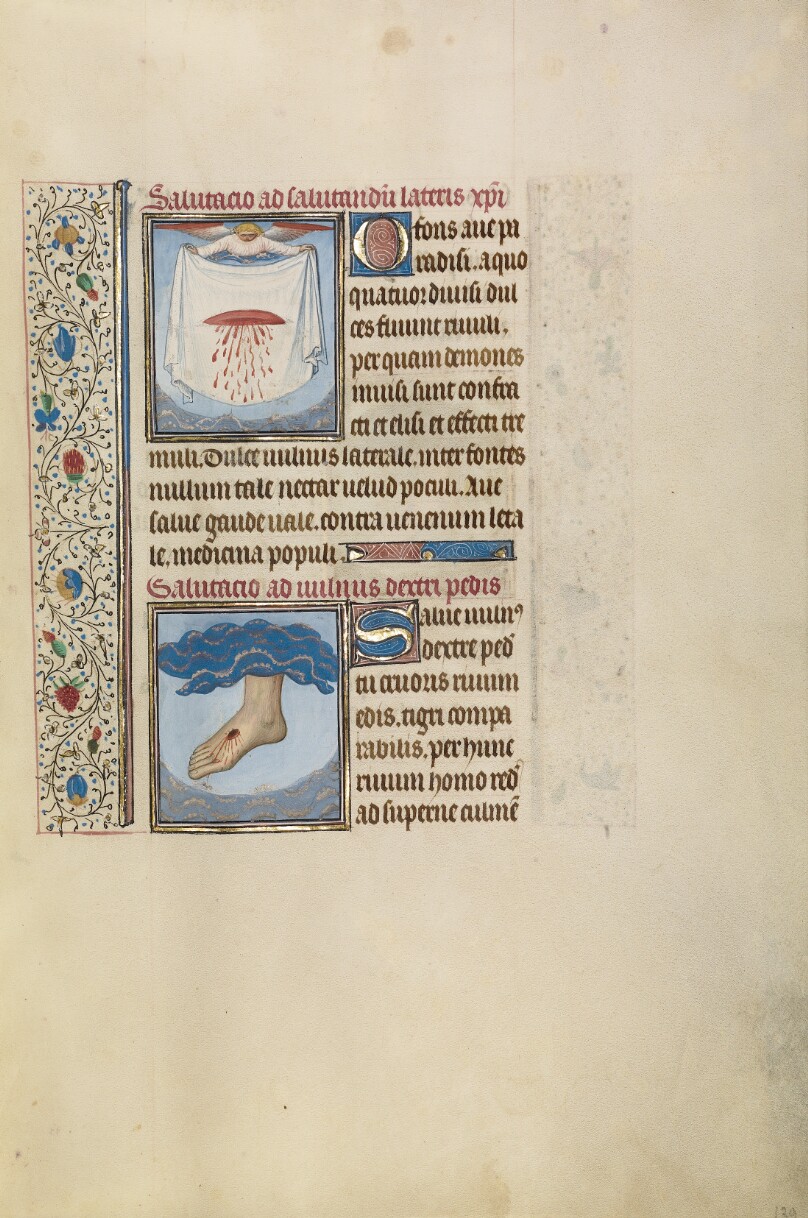 Salutacio ad salutandū lateris xp̄i
O fons aue pa
radisi. a quo
quatuor diuisi dul
ces fluunt riuuli.
per quam demones
inuisi sunt confra
cti et elisi et effecti tre
muli. Dulce uulnus laterale. inter fontes
nullum tale nectar uelud poculi. Aue
salue gaude uale. contra uenenum leta
le. medicina populi.
Salutacio ad uulnus dextri pedis
Salue uulnꝰ
dextre ped̄
tu cruoris riuum
edis. tigri compa
rabilis. per hunc
riuum homo red̄
ad superne culmē